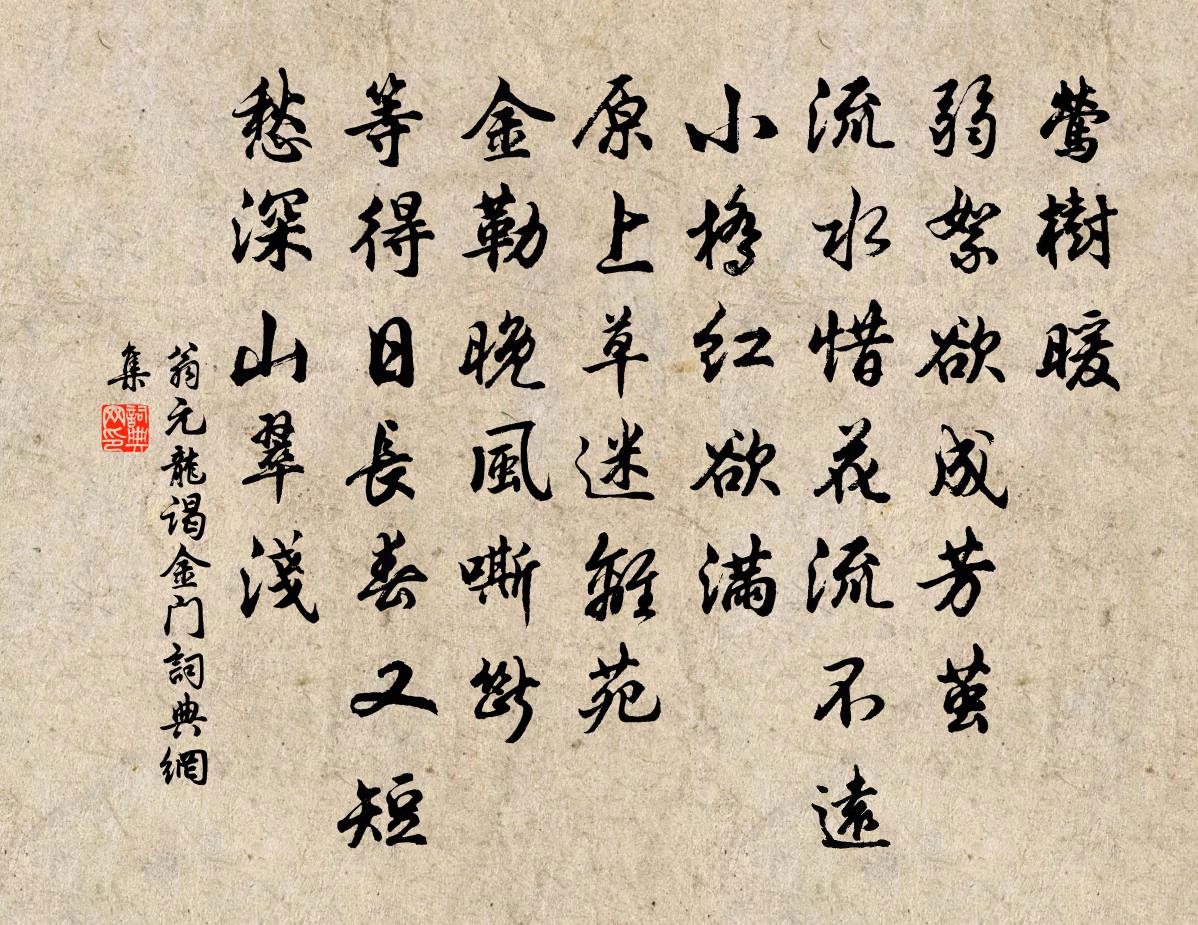 鶯樹暖
弱絮欲成芳茧
流水惜花流不遠
小橋红欲满
原上草迷離苑
金勒晚風嘶斷
等得日長春又短
愁深山翠淺
翁元龍谒金门詞典網
集
詞典
网印